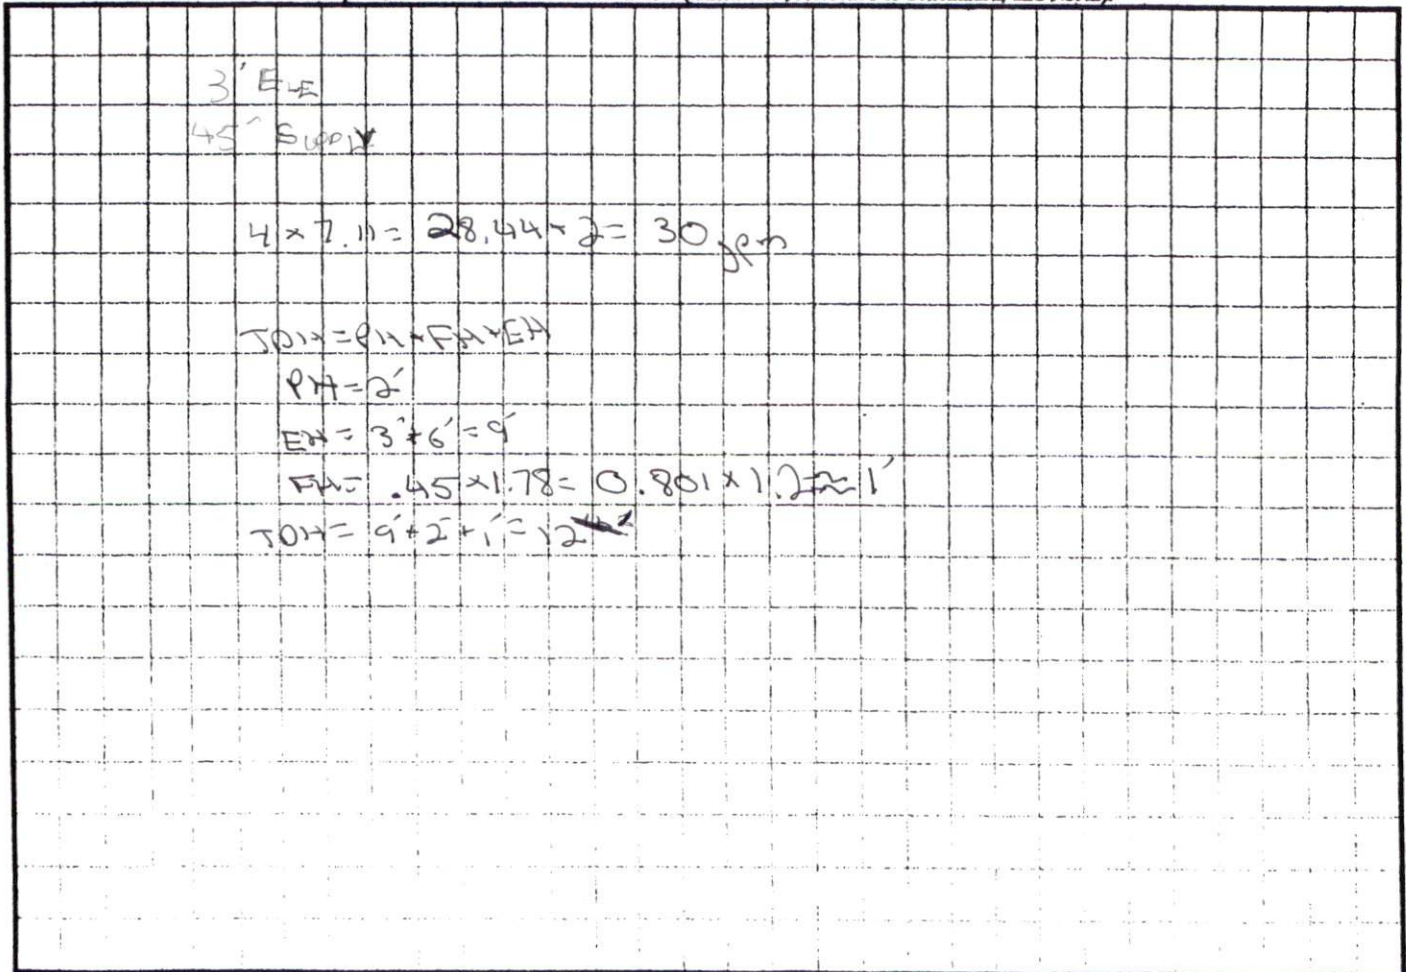 3' ELE
45' Supply
4 × 7.11 = 28.44 + 2 = 30 gpm
TDH = PH + FH + EH
PH = 2'
EH = 3' + 6' = 9'
FH = .45 × 1.78 = 0.801 × 1.2 = ≈ 1'
TDH = 9' + 2' + 1' = 12